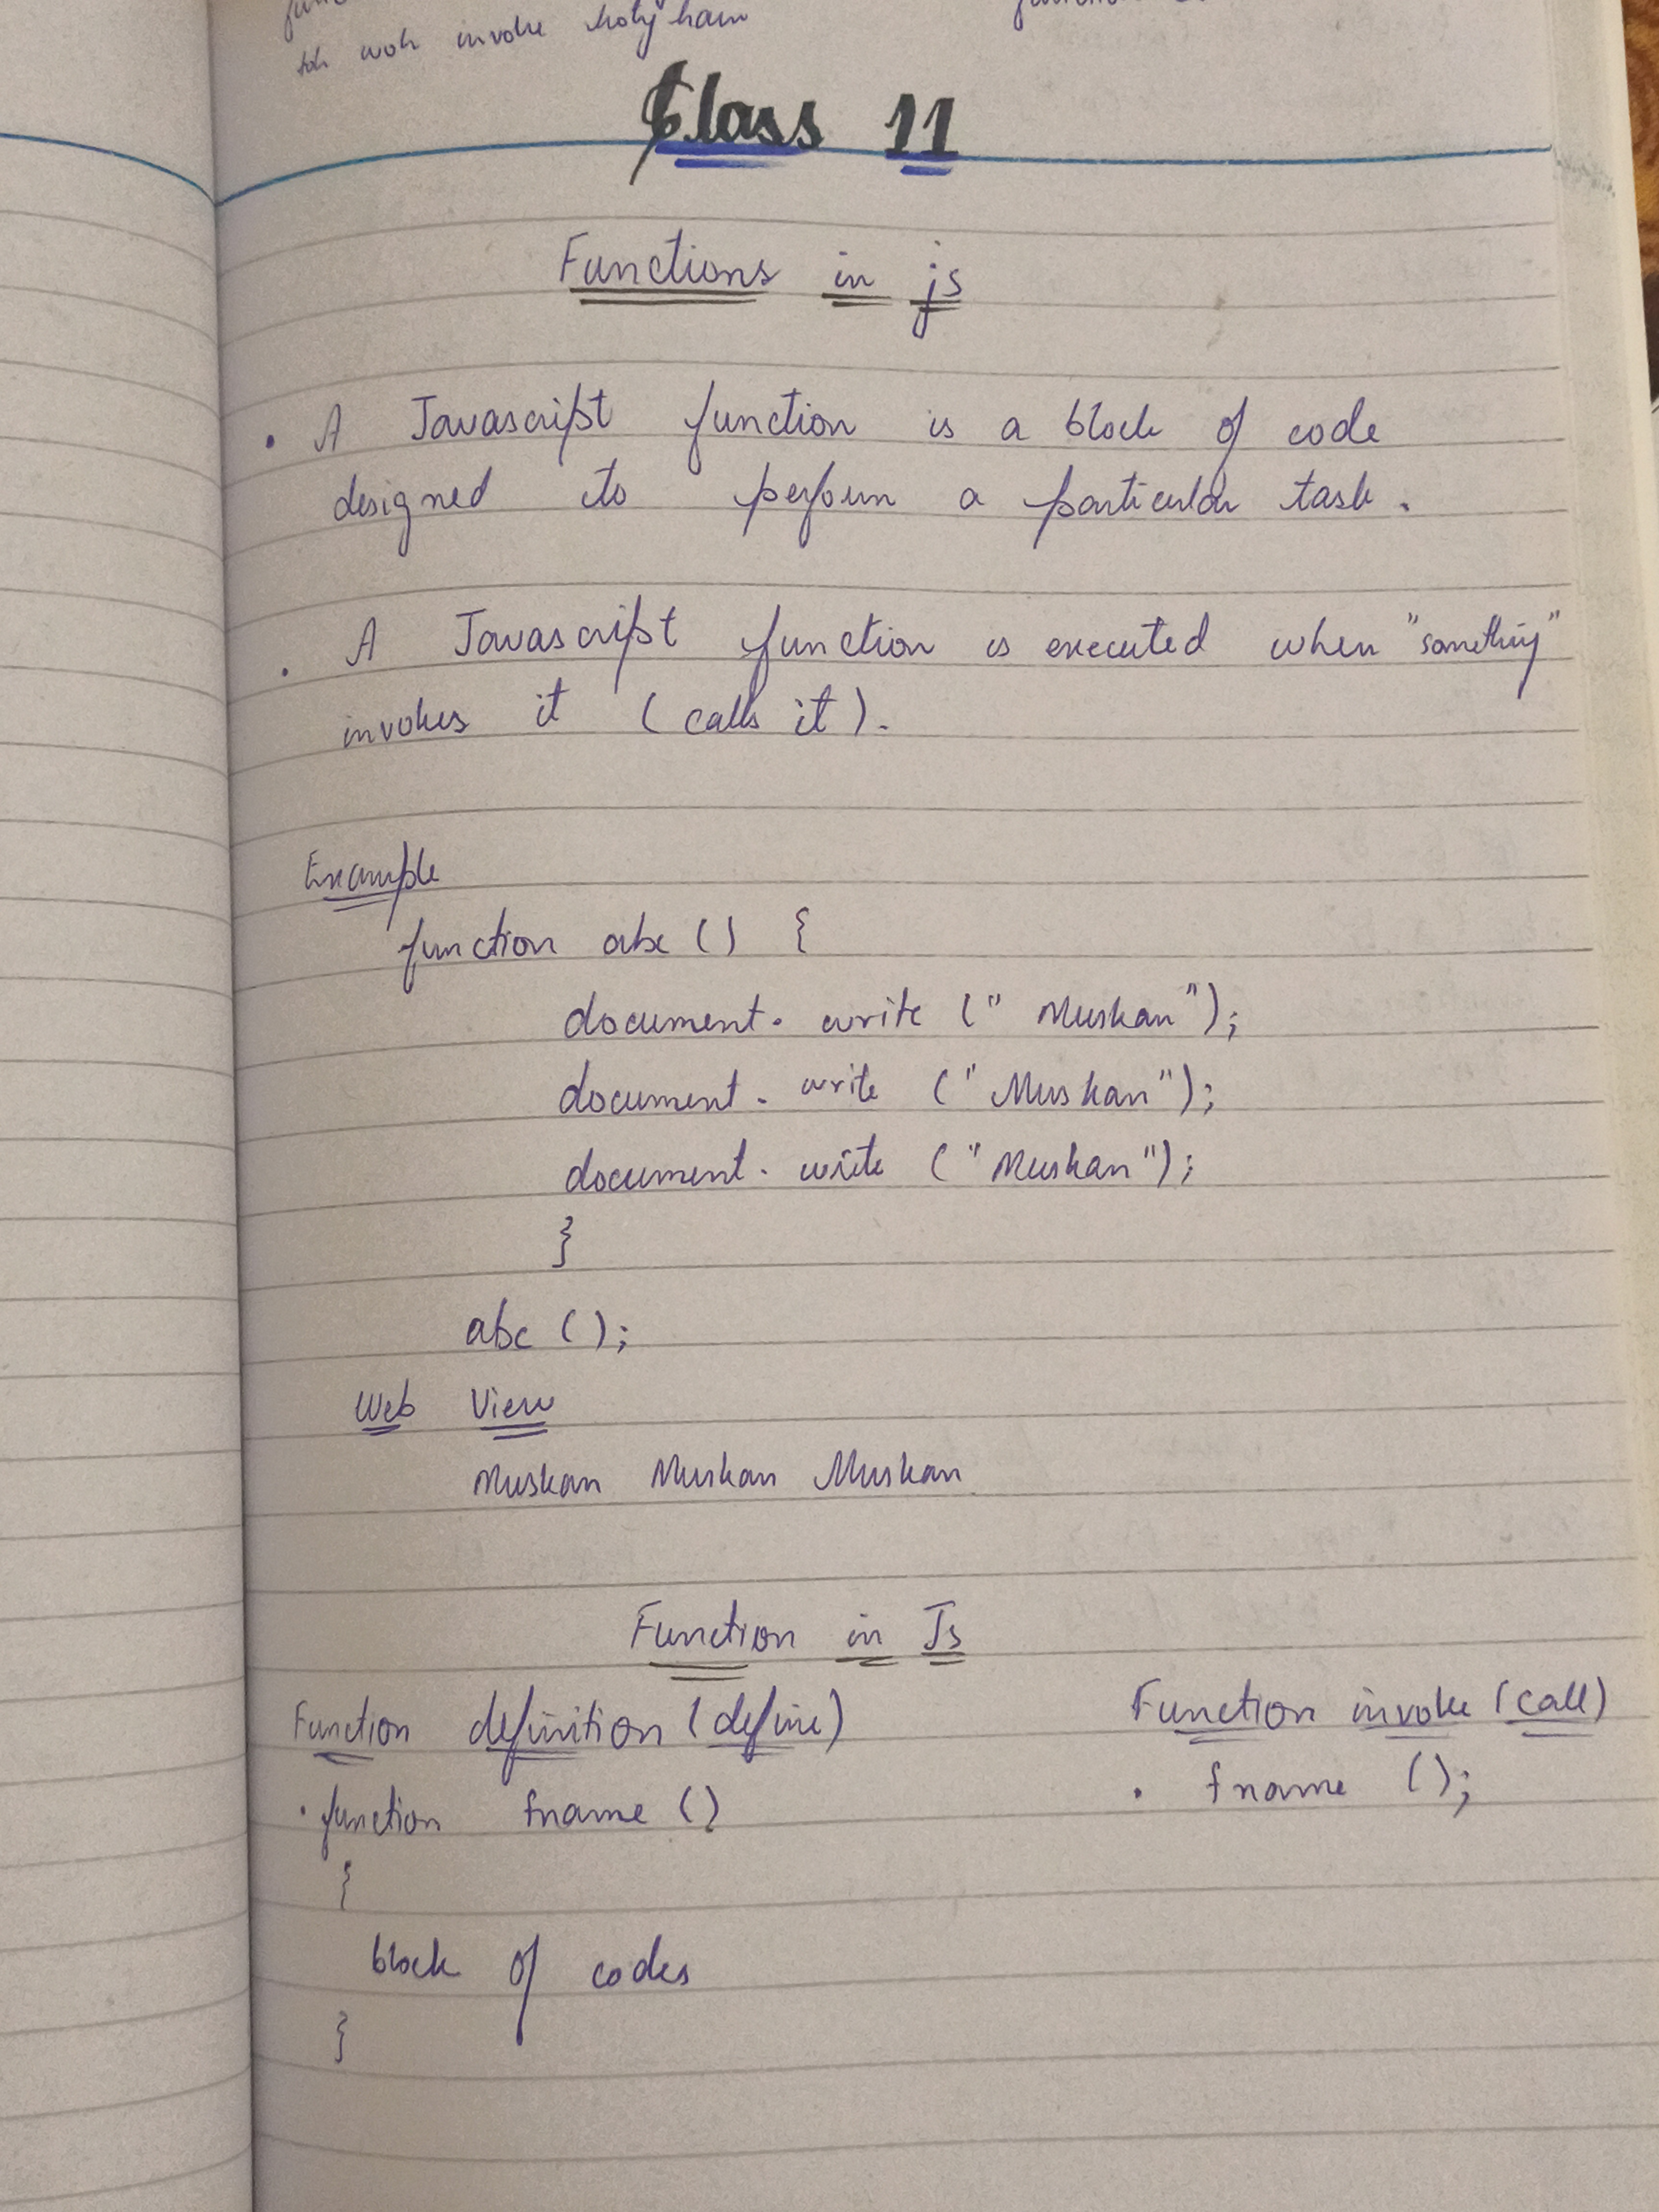 toh woh invoke hoty hain
Class 11
Functions in js
• A Javascript function is a block of code
designed to perform a particular task.
• A Javascript function is executed when "something"
invokes it (calls it).
Example
function abc () {
document. write (" Muskan");
document. write ("Muskan");
document. write ("Muskan");
}
abc ();
Web View
Muskan Muskan Muskan
Function in Js
Function definition (define)
Function invoke (call)
• function fname ()
• fname ();
{
block of codes
}